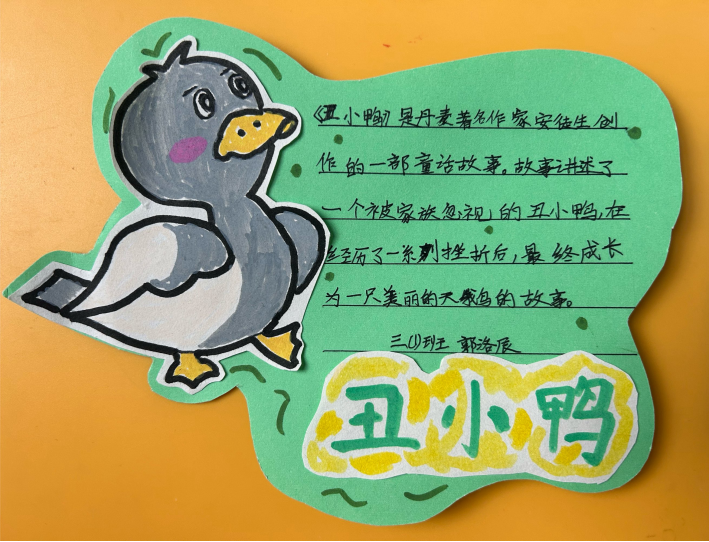 《丑小鸭》是丹麦著名作家安徒生创
作的一部童话故事。故事讲述了
一个被家族忽视的丑小鸭,在
经历了一系列挫折后,最终成长
为一只美丽的天鹅的故事。
三(1)班 郭洛辰
丑小鸭